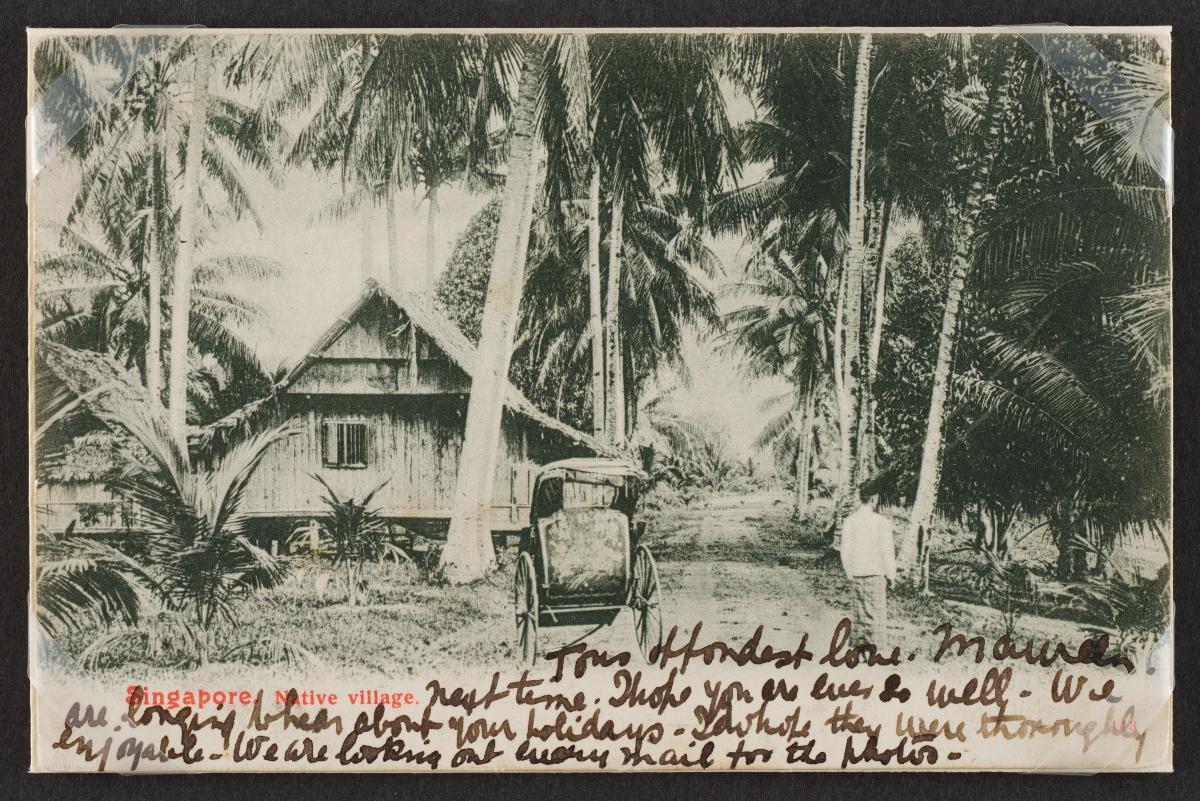 Tons offondest love. Maureen
Singapore, Native village.
next time. I hope you are ever so well - We
are longing to hear about your holidays - I do hope they were thoroughly
enjoyable - We are looking out every mail for the photos -